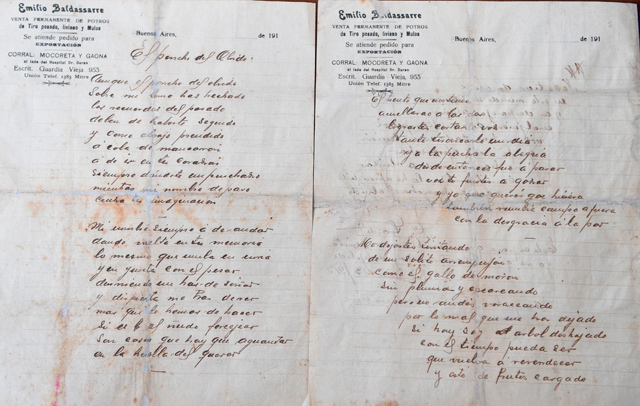 Emilio Baldassarre
VENTA PERMANENTE DE POTROS
de Tiro pesado, liviano y Mulas
Se atiende pedido para
EXPORTACIÓN
CORRAL: MOCORETA Y GAONA
al lado del Hospital Dr. Duran
Escrit. Guardia Vieja 953
Unión Telef. 1363 Mitre
Buenos Aires, 191
El poncho del Olvido
Aunque el poncho del olvido
Sobre mi has hechado
los recuerdos del pasado
deben de haberte seguido
y como abrojo prendido
á cola de mancarrón
á de ir en tu corazón
Siempre dandote un puachaso
mientras mi nombre de paso
Cruza tu imaginacion
Mi nombre siempre á de andar
dando vuelta en tu memoria
lo mismo que mula en
y en yunta con el pesar
durmiendo un has de soñar
y dispierta me has de ver
mas que le hemos de hacer
Si es al nudo forcejear
Son cosas que hay que aguantar
en la huella del querer
Emilio Baldassarre
VENTA PERMANENTE DE POTROS
de Tiro pesado, liviano y Mulas
Se atiende pedido para
EXPORTACIÓN
CORRAL: MOCORETA Y GAONA
al lado del Hospital Dr. Duran
Escrit. Guardia Vieja 953
Unión Telef. 1363 Mitre
Buenos Aires, 191
El
á los dos
cortar
un dia
y á la pucha la alegria
donde entonces fué á parar
vos te fuistes á gozar
y yo que queres que hiciera
tambien rumbié campo afuera
con la desgracia á la par
Me dejastes tiritando
de un solo arrempujón
como el gallo de moron
Sin plumas y cacareando
pero no andés
por lo mal que me has dejado
Si hoy soy arbol deshojado
con el tiempo pueda ser
que vuelva á reverdecer
y este de frutos cargado